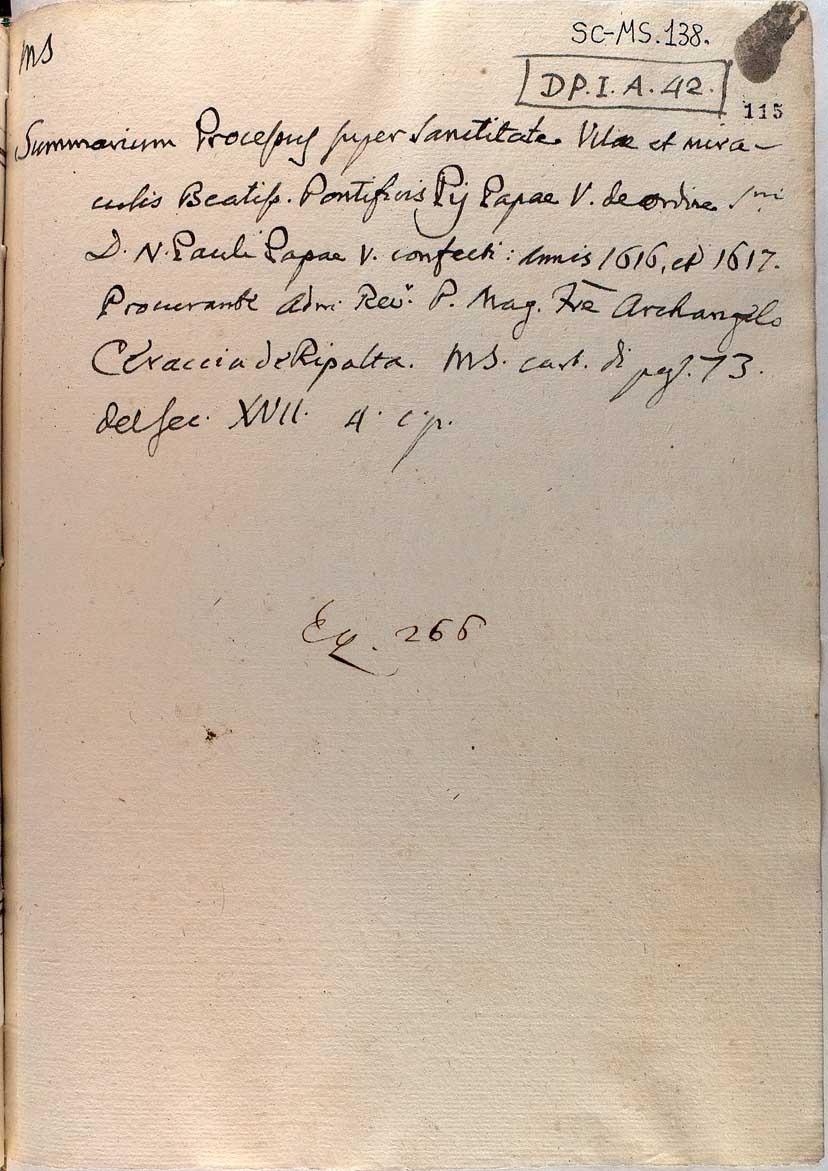 SC-MS.138.
MS
DP.I.A.42.
115
Summarium Processus super Sanctitate Vitae et mira-
culis Beatiss. Pontificis Pij Papae V. de ordine Smi
D. N. Pauli Papae V. confecti: annis 1616, et 1617.
Procurante Adm. Rev. P. Mag. Fre Archangelo
Caraccia de Ripalta. MS. cart. di pag. 73.
del sec. XVII. 4. c.p.
Eq. 266